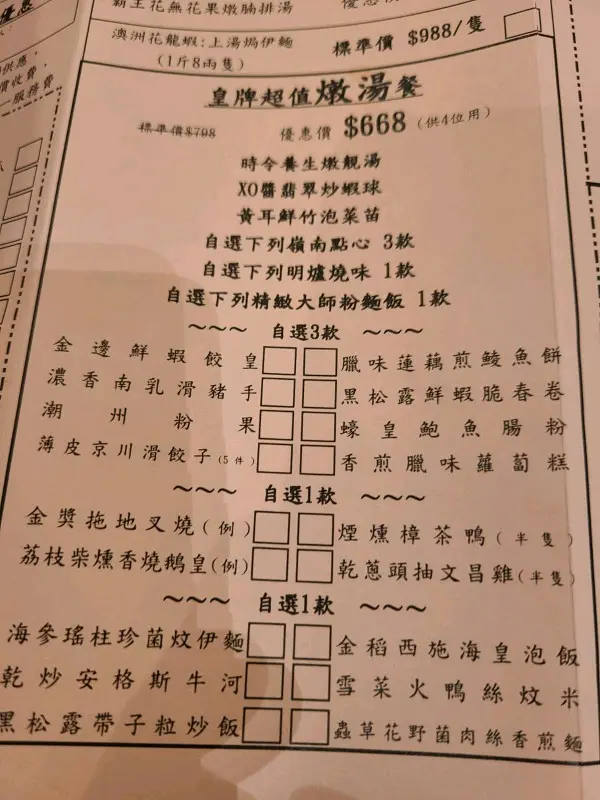 霸王花無花果燉腩排湯
優惠
澳洲花龍蝦:上湯焗伊麵
(1斤8兩隻)
標準價 $988/隻
皇牌超值燉湯餐
標準價$798 優惠價 $668 (供4位用)
時令養生燉靚湯
XO醬翡翠炒蝦球
黃耳鮮竹泡菜苗
自選下列嶺南點心 3款
自選下列明爐燒味 1款
自選下列精緻大師粉麵飯 1款
～～～ 自選3款 ～～～
金邊鮮蝦餃皇 臘味蓮藕煎鯪魚餅
濃香南乳滑豬手 黑松露鮮蝦脆春卷
潮州粉果 蠔皇鮑魚腸粉
薄皮京川滑餃子(5件) 香煎臘味蘿蔔糕
～～～ 自選1款 ～～～
金獎拖地叉燒(例) 煙燻樟茶鴨(半隻)
荔枝柴燻香燒鵝皇(例) 乾蔥頭抽文昌雞(半隻)
～～～ 自選1款 ～～～
海參瑤柱珍菌炆伊麵 金稻西施海皇泡飯
乾炒安格斯牛河 雪菜火鴨絲炆米
黑松露帶子粒炒飯 蟲草花野菌肉絲香煎麵